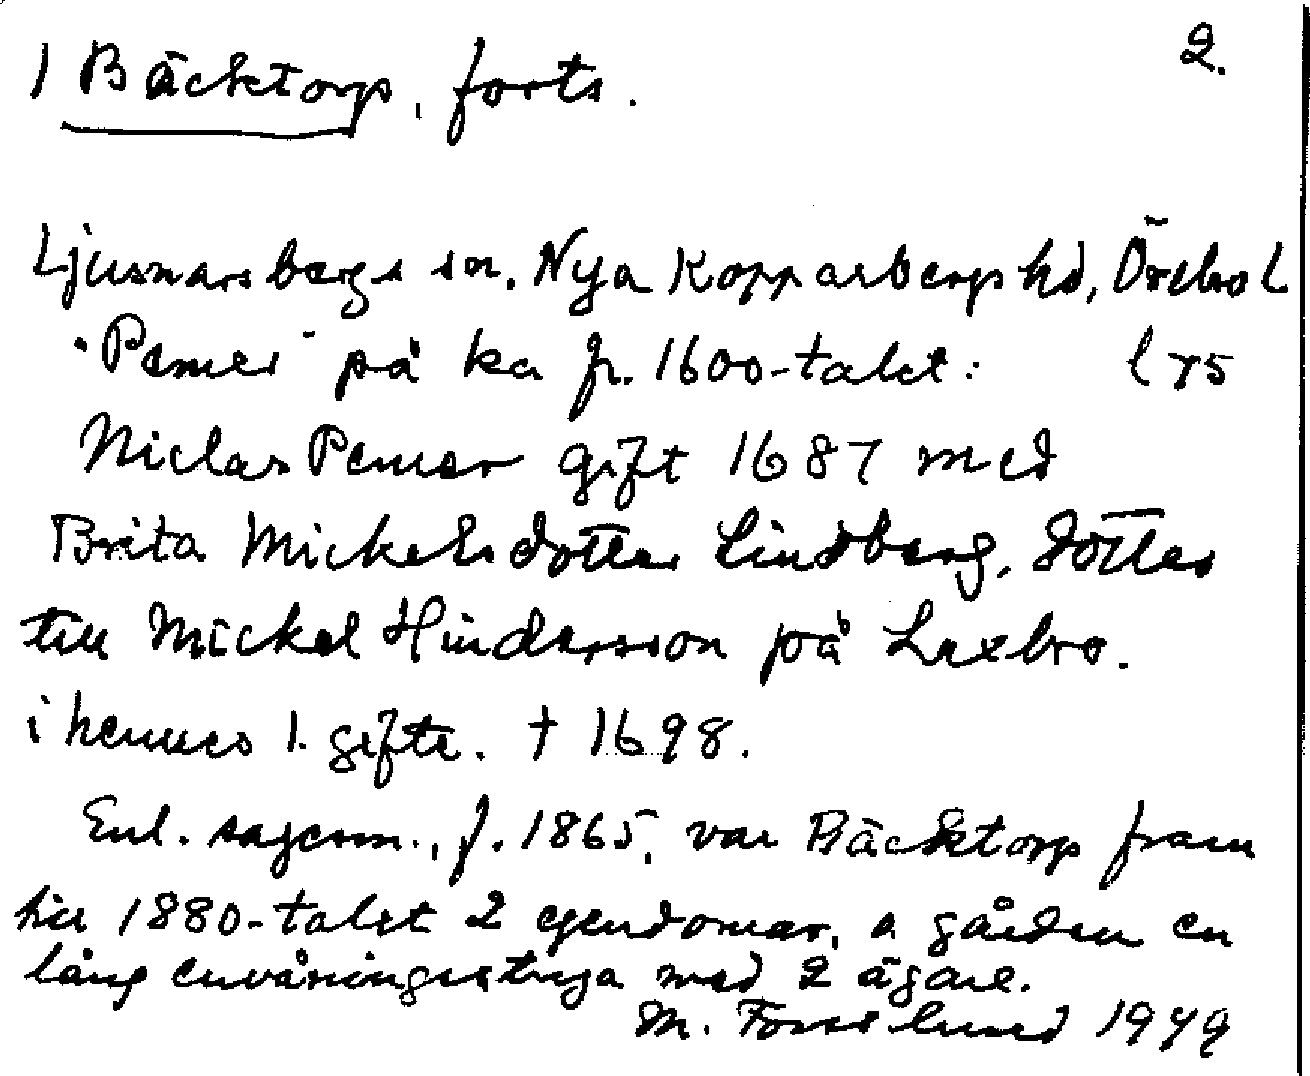 1 Bäcktorp, forts. 2.
Ljusnarsbergs sn. Nya Kopparbergs hd, Örebro L
"Pemer" på ka fr. 1600-talet:
Niclas Pemer gift 1687 med
Brita Mickelsdotter Lindberg, dotter
till Mickel Hindersson på Laxbro.
i hennes 1. gifte. † 1698.
Enl. sagesm., f. 1865, var Bäcktorp fram
till 1880-talet 2 egendomar, o gården en
lång envåningsstuga med 2 ägare.
M. Forslund 1949